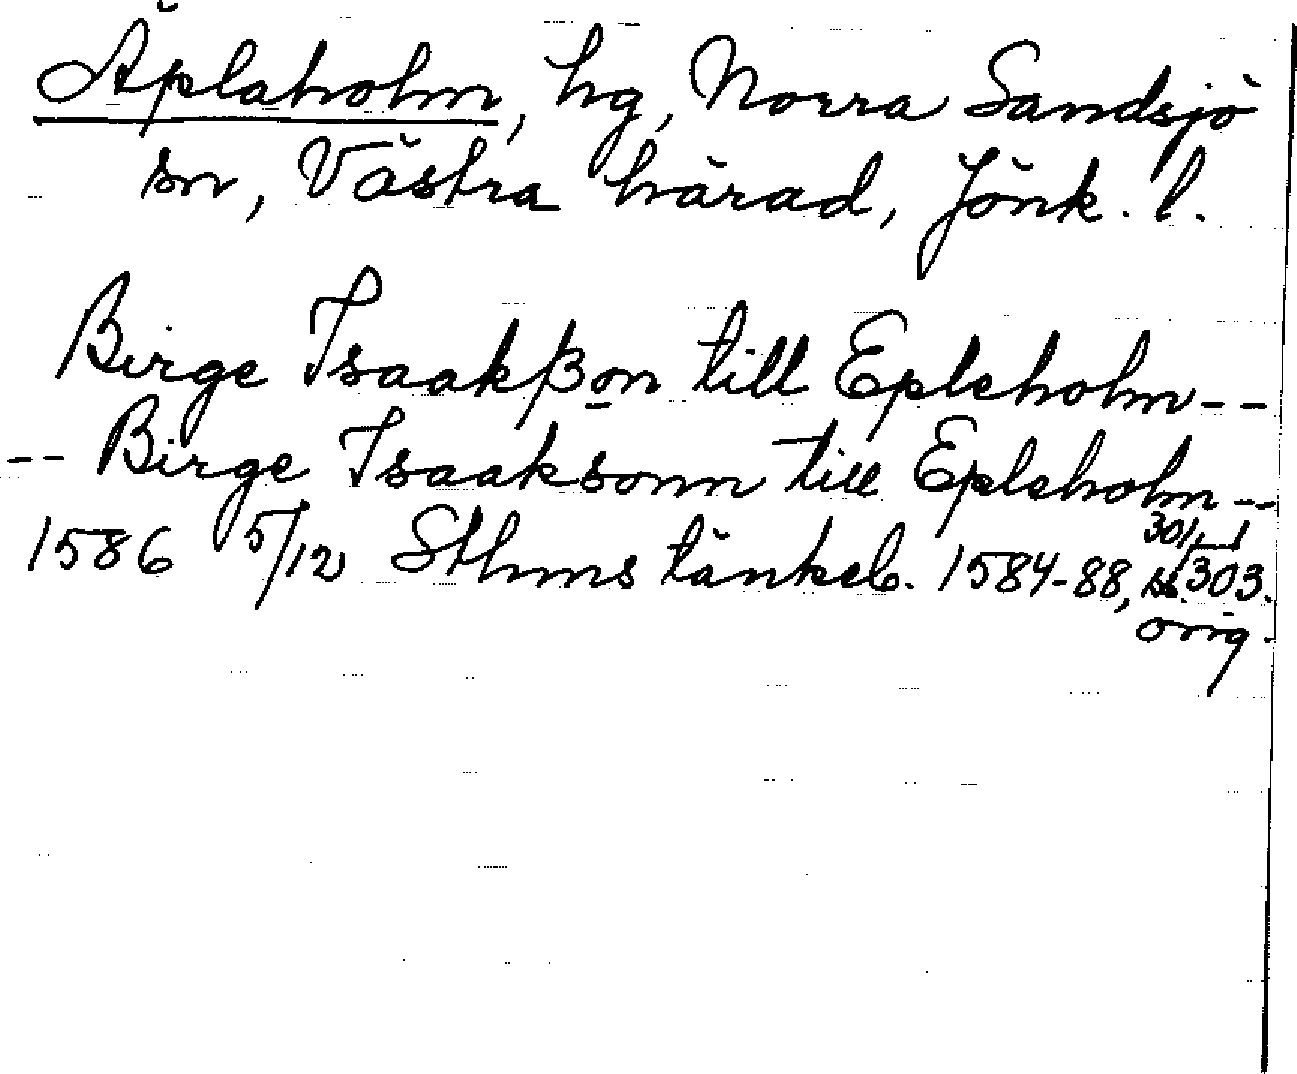 Äplaholm, hg, Norra Sandsjö
sn, Västra härad, Jönk. l.
Birge Isaakßon till Epleholm --
-- Birge Isaaksonn till Epleholm --
1586 5/12 Sthms tänkeb. 1584-88, s. 303.
orig.